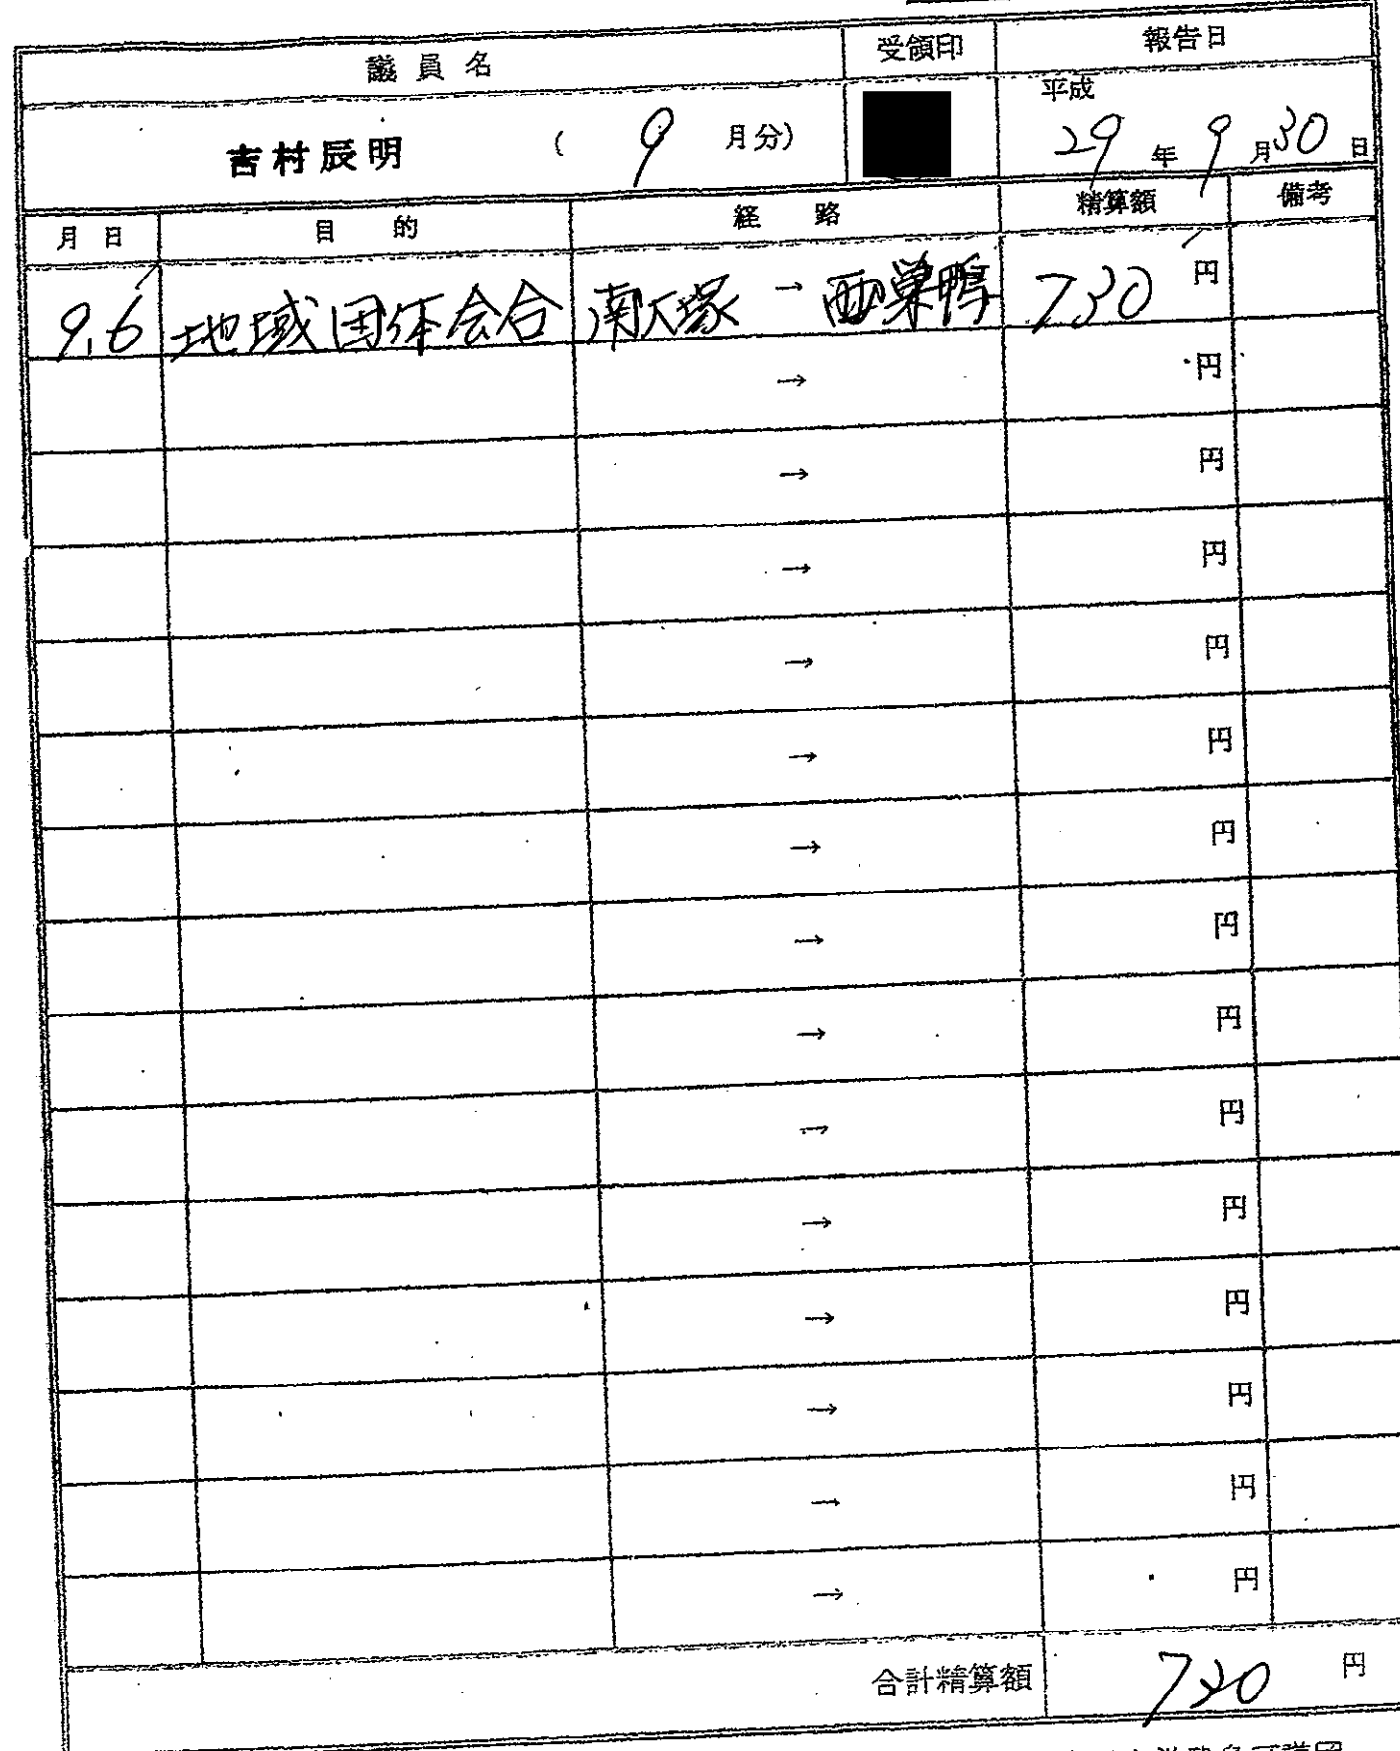 議員名 受領印 報告日
吉村辰明 ( 9 月分) 平成 29 年 9 月 30 日
月日 目的 経路 精算額 備考
9.6 地域団体会合 南大塚 → 西巣鴨 730 円
→ 円
→ 円
→ 円
→ 円
→ 円
→ 円
→ 円
→ 円
→ 円
→ 円
→ 円
→ 円
→ 円
→ 円
合計精算額 730 円